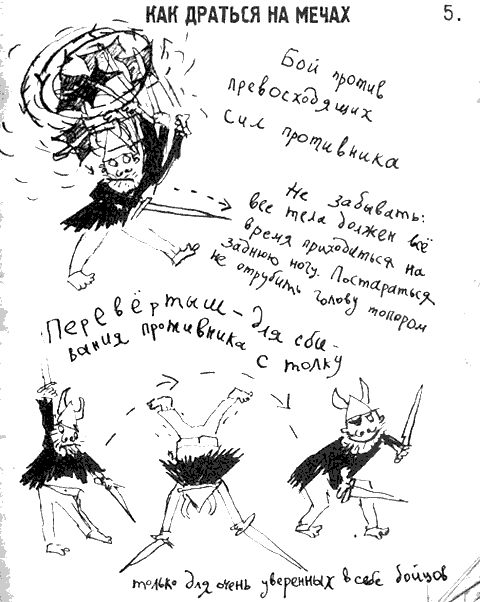 КАК ДРАТЬСЯ НА МЕЧАХ
5.
Бой против
превосходящих
сил противника
Не забывать:
вес тела должен всё
время приходиться на
заднюю ногу. Постараться
не отрубить голову топором
Перевёртыш – для сби-
вания противника с толку
только для очень уверенных в себе бойцов